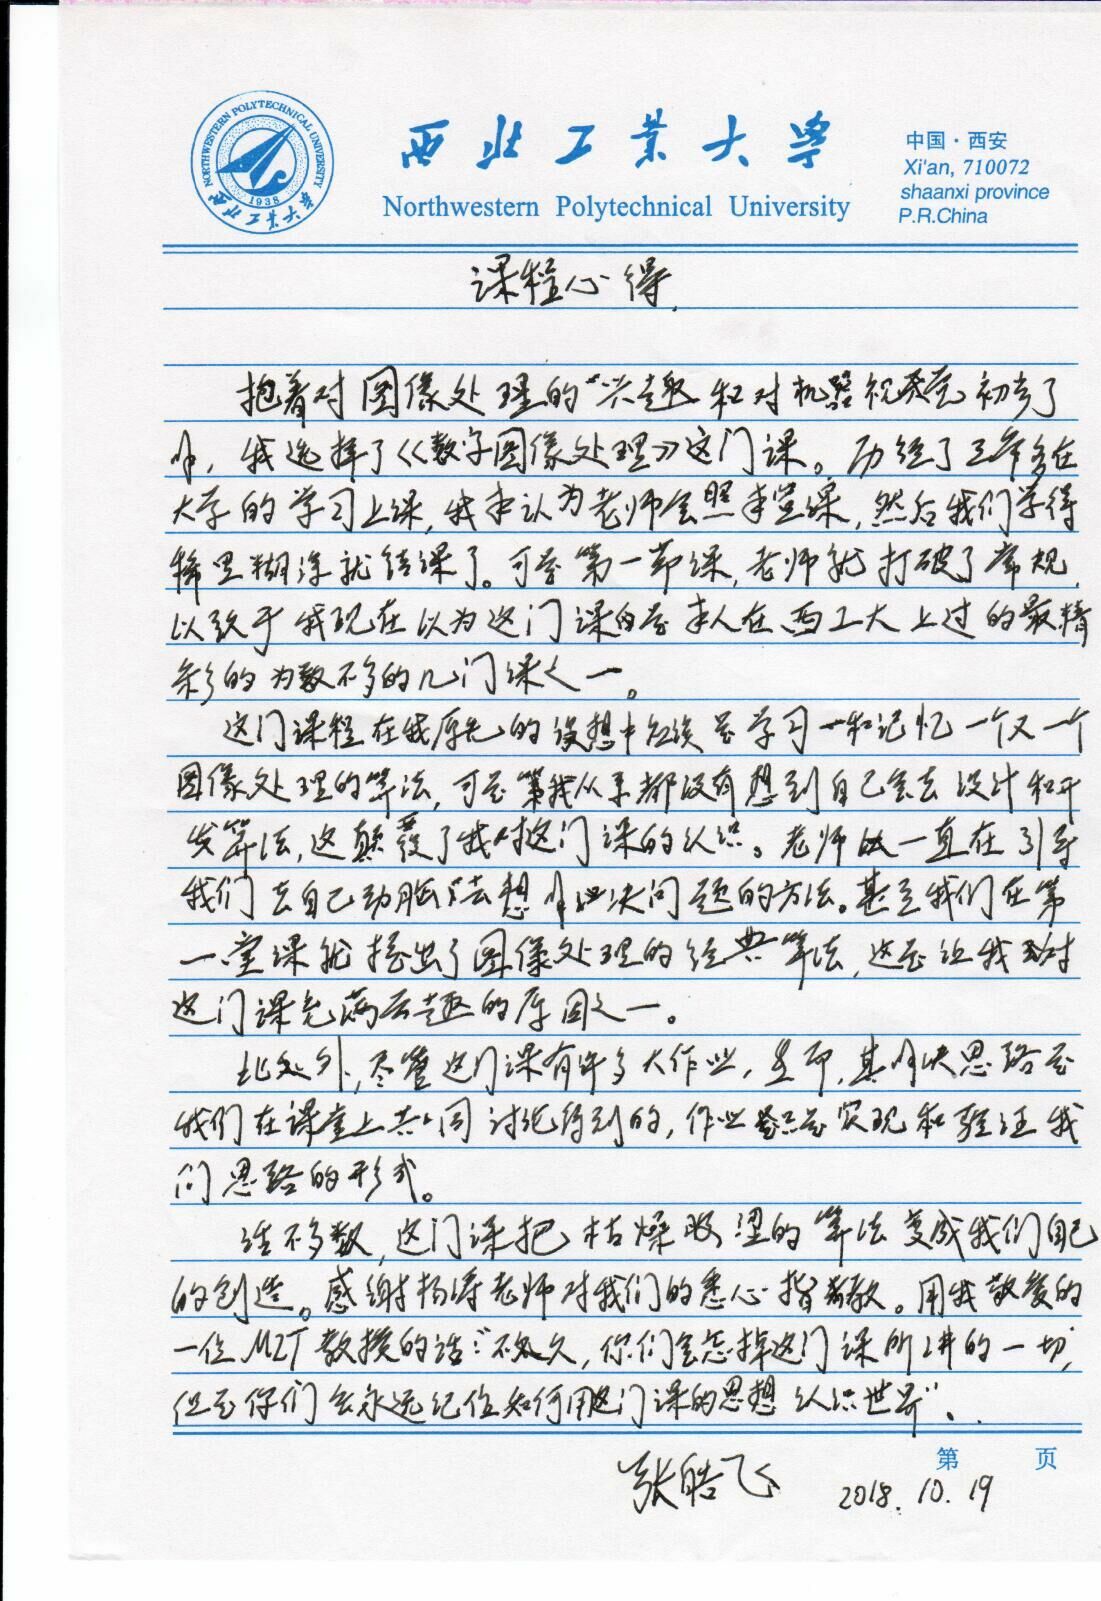 NORTHWESTERN POLYTECHNICAL UNIVERSITY
1938
西北工业大学
西北工业大学
Northwestern Polytechnical University
中国·西安
Xi'an, 710072
shaanxi province
P.R.China
课程心得.
抱着对图像处理的兴趣和对机器视觉初步了
解，我选择了《数字图像处理》这门课。历经了三年多在
大学的学习上课，我本认为老师会照本宣课，然后我们学得
稀里糊涂就结课了。可是第一节课，老师就打破了常规，
以致于我现在以为这门课是本人在西工大上过的最精
彩的为数不多的几门课之一。
这门课程在我原先的设想中应该是学习和记忆一个又一个
图像处理的算法，可是我从来都没有想到自己会去设计和开
发算法，这颠覆了我对这门课的认识。老师一直在引导
我们去自己动脑去想解决问题的方法。甚至我们在第
一堂课就提出了图像处理的经典算法，这是让我对
这门课充满兴趣的原因之一。
此外，尽管这门课有许多大作业，然而，其解决思路是
我们在课堂上共同讨论得到的，作业只是实现和验证我
们思路的形式。
话不多叙，这门课把枯燥的算法变成我们自己
的创造。感谢杨涛老师对我们的悉心指教。用我敬爱的
一位MIT教授的话：“不久，你们会忘掉这门课所讲的一切，
但是你们会永远记住如何用这门课的思想认识世界”。
张皓飞
2018.10.19
第 页